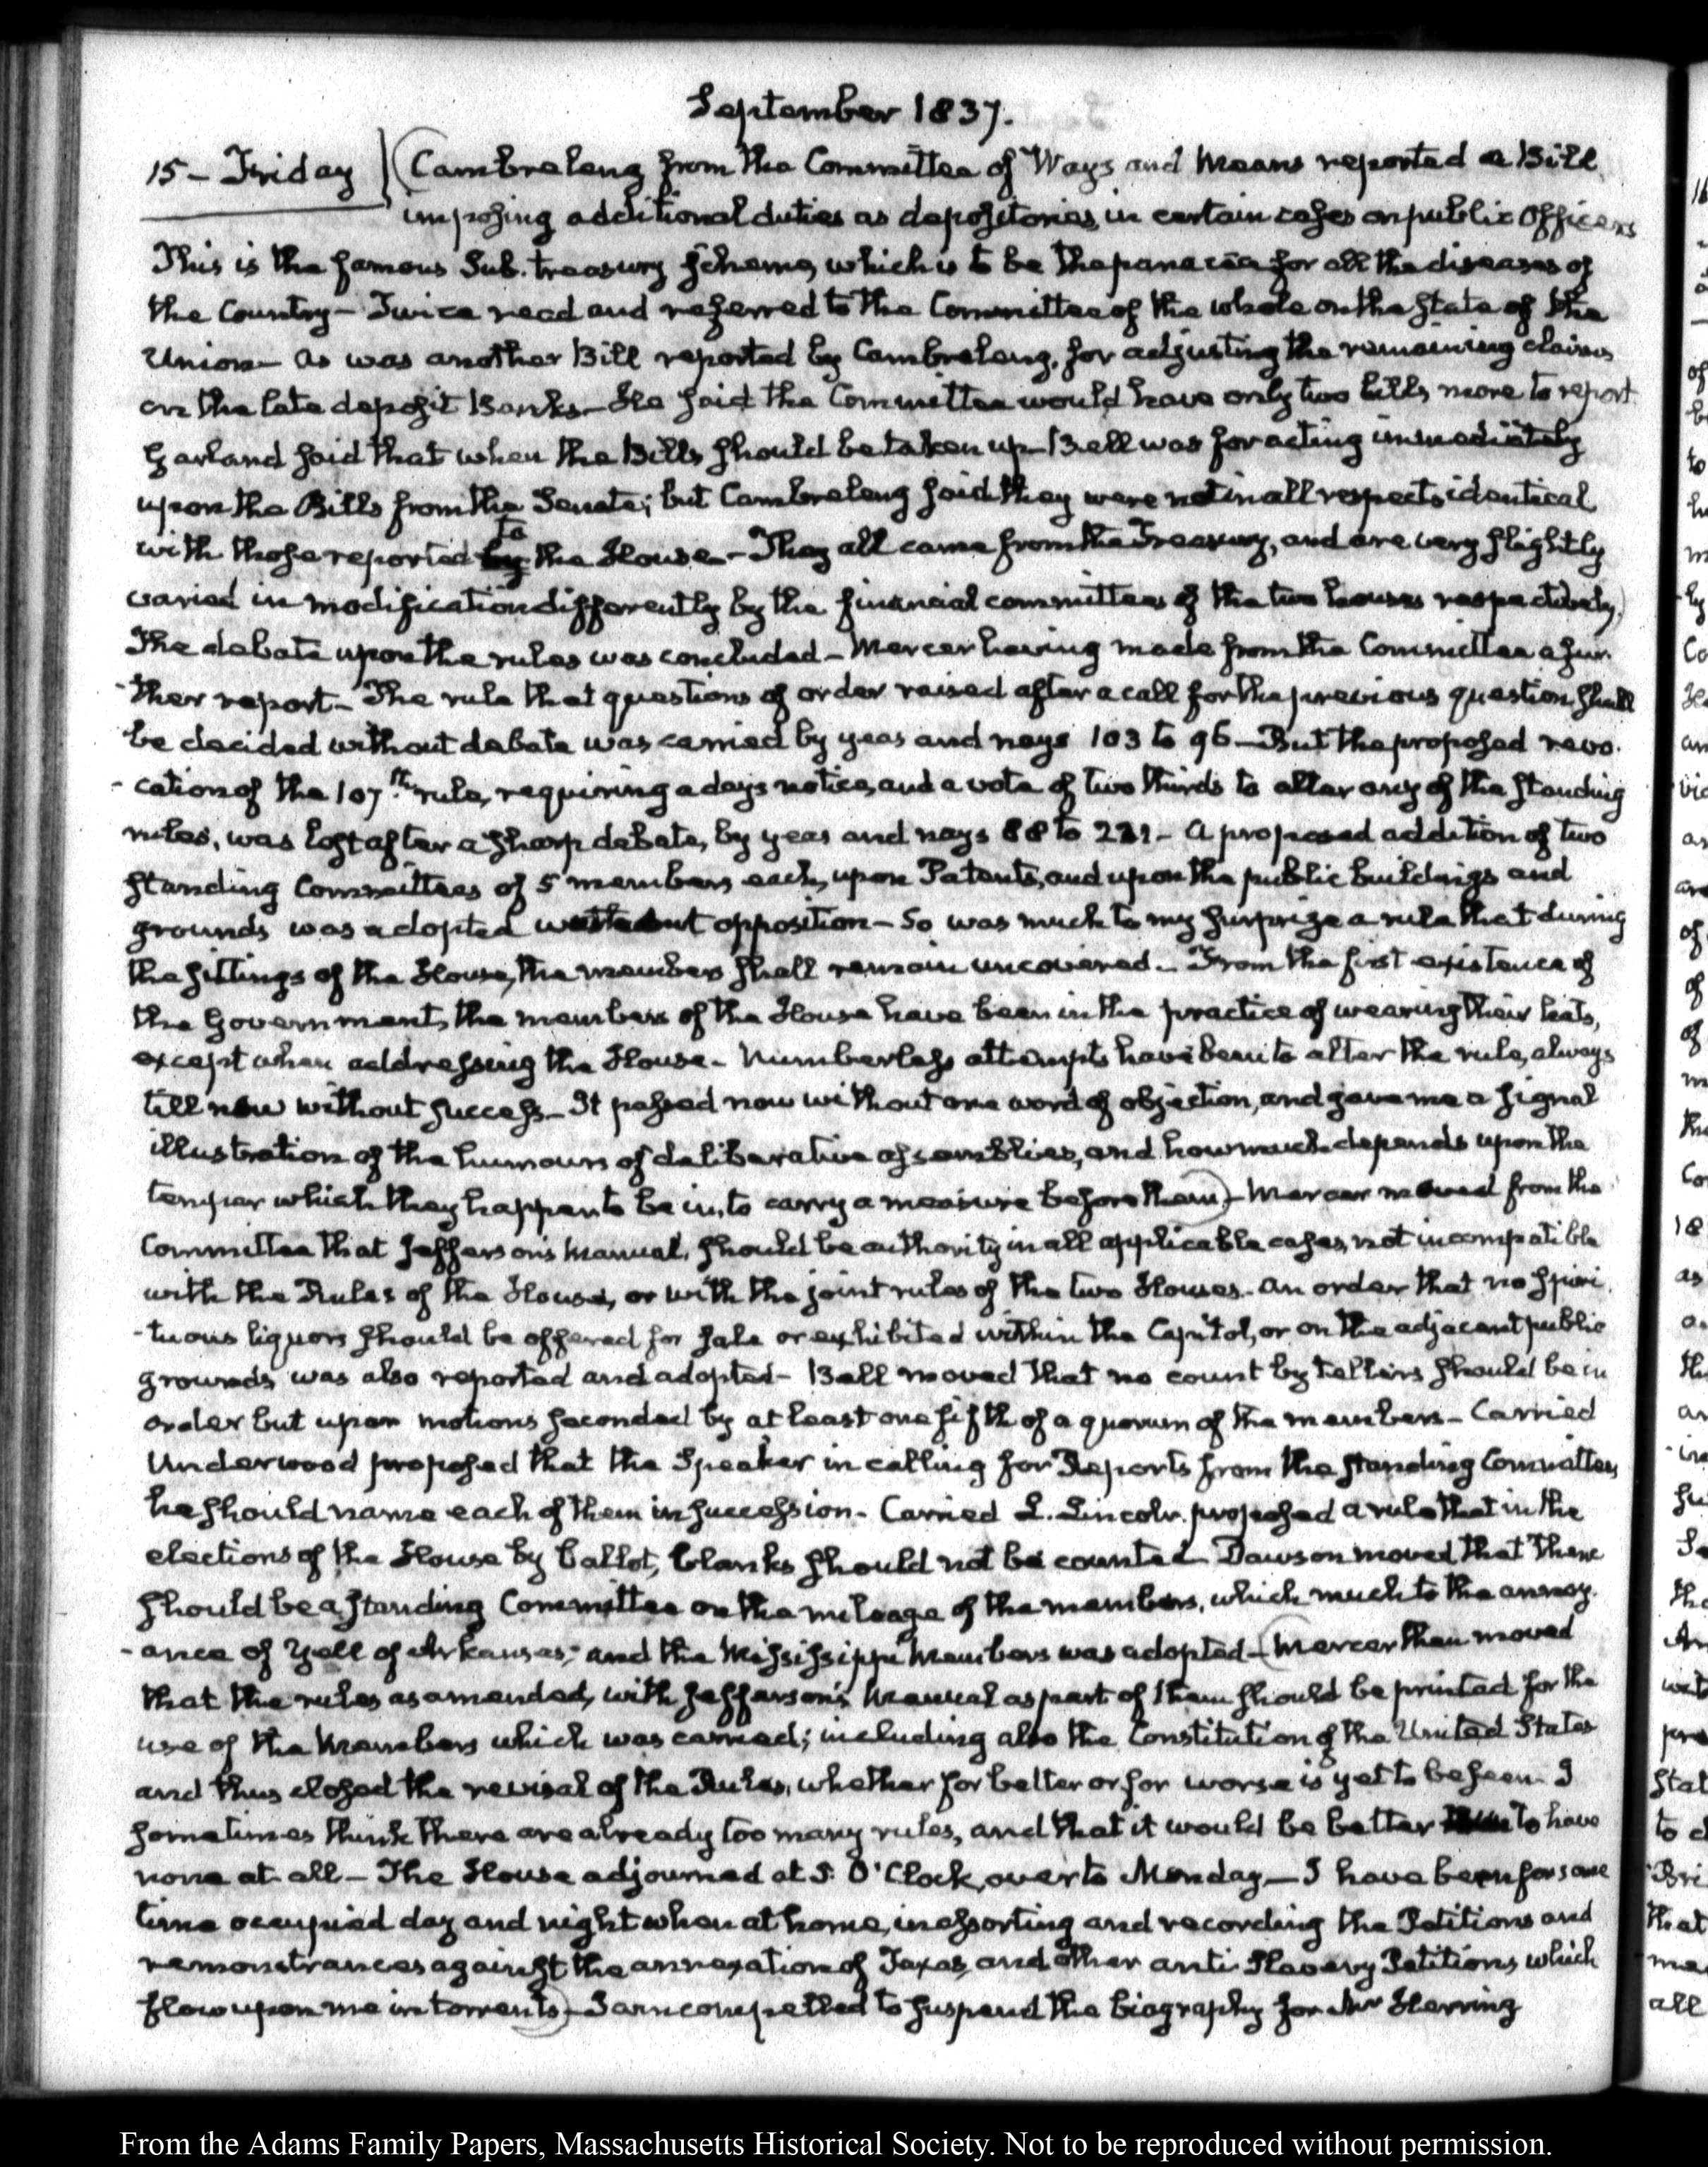 September 1837.
15 – Friday (Cambreleng from the Committee of Ways and Means reported a Bill
imposing additional duties as depositories, in certain cases on public Officers
This is the famous Sub. treasury scheme, which is to be the panacea for all the diseases of
the Country – Twice read and referred to the Committee of the whole on the state of the
Union – as was another Bill reported by Cambreleng, for adjusting the remaining claims
on the late deposit Banks – He said the Committee would have only two bills more to report
Garland said that when the Bills should be taken up – Bell was for acting immediately
upon the Bills from the Senate; but Cambreleng said they were not in all respects identical
with those reported by to the House – They all came from the Treasury, and are very slightly
varied in modification differently by the financial committees of the two houses respectively)
The debate upon the rules was concluded – Mercer having made from the Committee a fur-
-ther report – The rule that questions of order raised after a call for the previous question shall
be decided without debate was carried by yeas and nays 103 to 96 – But the proposed revo-
-cation of the 107th rule, requiring a days notice, and a vote of two thirds to alter any of the standing
rules, was lost after a sharp debate, by yeas and nays 88 to 221 – a proposed addition of two
standing Committees of 5 members each, upon Patents, and upon the public buildings and
grounds was adopted without opposition – So was much to my surprize a rule that during
the sittings of the House, the members shall remain uncovered – From the first existence of
the Government, the members of the House have been in the practice of wearing their hats,
except when addressing the House – Numberless attempts have been to alter the rule, always
till now without success – It passed now without one word of objection, and gave me a signal
illustration of the humours of deliberative assemblies, and how much depends upon the
temper which they happen to be in, to carry a measure before them) – Mercer moved from the
Committee that Jefferson's Manual, should be authority in all applicable cases, not incompatible
with the Rules of the House, or with the joint rules of the two Houses – an order that no spiri-
-tuous liquors should be offered for sale or exhibited within the Capitol, or on the adjacent public
grounds was also reported and adopted – Bell moved that no count by tellers should be in
order but upon motions seconded by at least one fifth of a quorum of the members – Carried
Underwood proposed that the Speaker in calling for Reports from the standing Committees,
he should name each of them in succession – Carried L. Lincoln proposed a rule that in the
elections of the House by ballot, blanks should not be counted – Dawson moved that there
should be a standing Committee on the mileage of the members, which much to the annoy-
-ance of Yell of Arkansas, and the Mississippi Members was adopted – (Mercer then moved
that the rules as amended, with Jefferson's Manual as part of them should be printed for the
use of the Members which was carried; including also the Constitution of the United States
and thus closed the revisal of the Rules, whether for better or for worse is yet to be seen – I
sometimes think there are already too many rules, and that it would be better to have
none at all – The House adjourned at 5. O'Clock, over to Monday – I have been for some
time occupied day and night when at home, in assorting and recording the Petitions and
remonstrances against the annexation of Texas, and other anti Slavery Petitions, which
flow upon me in torrents) – I am compelled to suspend the biography for Mr Herring
From the Adams Family Papers, Massachusetts Historical Society. Not to be reproduced without permission.